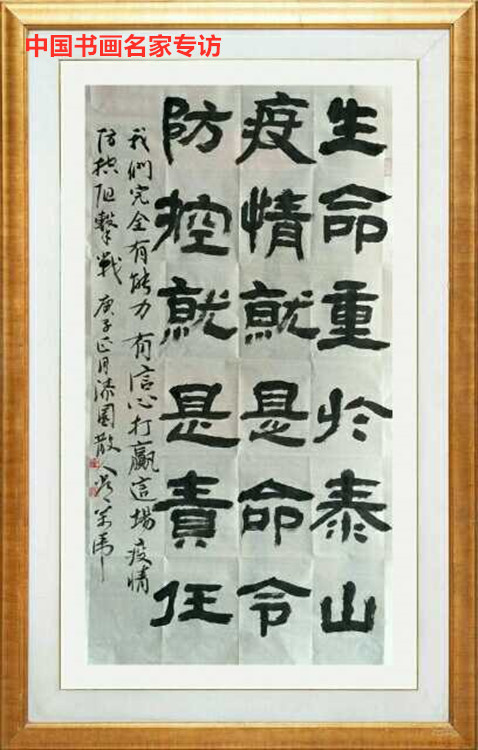 中国书画名家专访
生命重於泰山
疫情就是命令
防控就是責任
我們完全有能力有信心打贏這場疫情
防控阻擊戰 庚子正月漆園散人